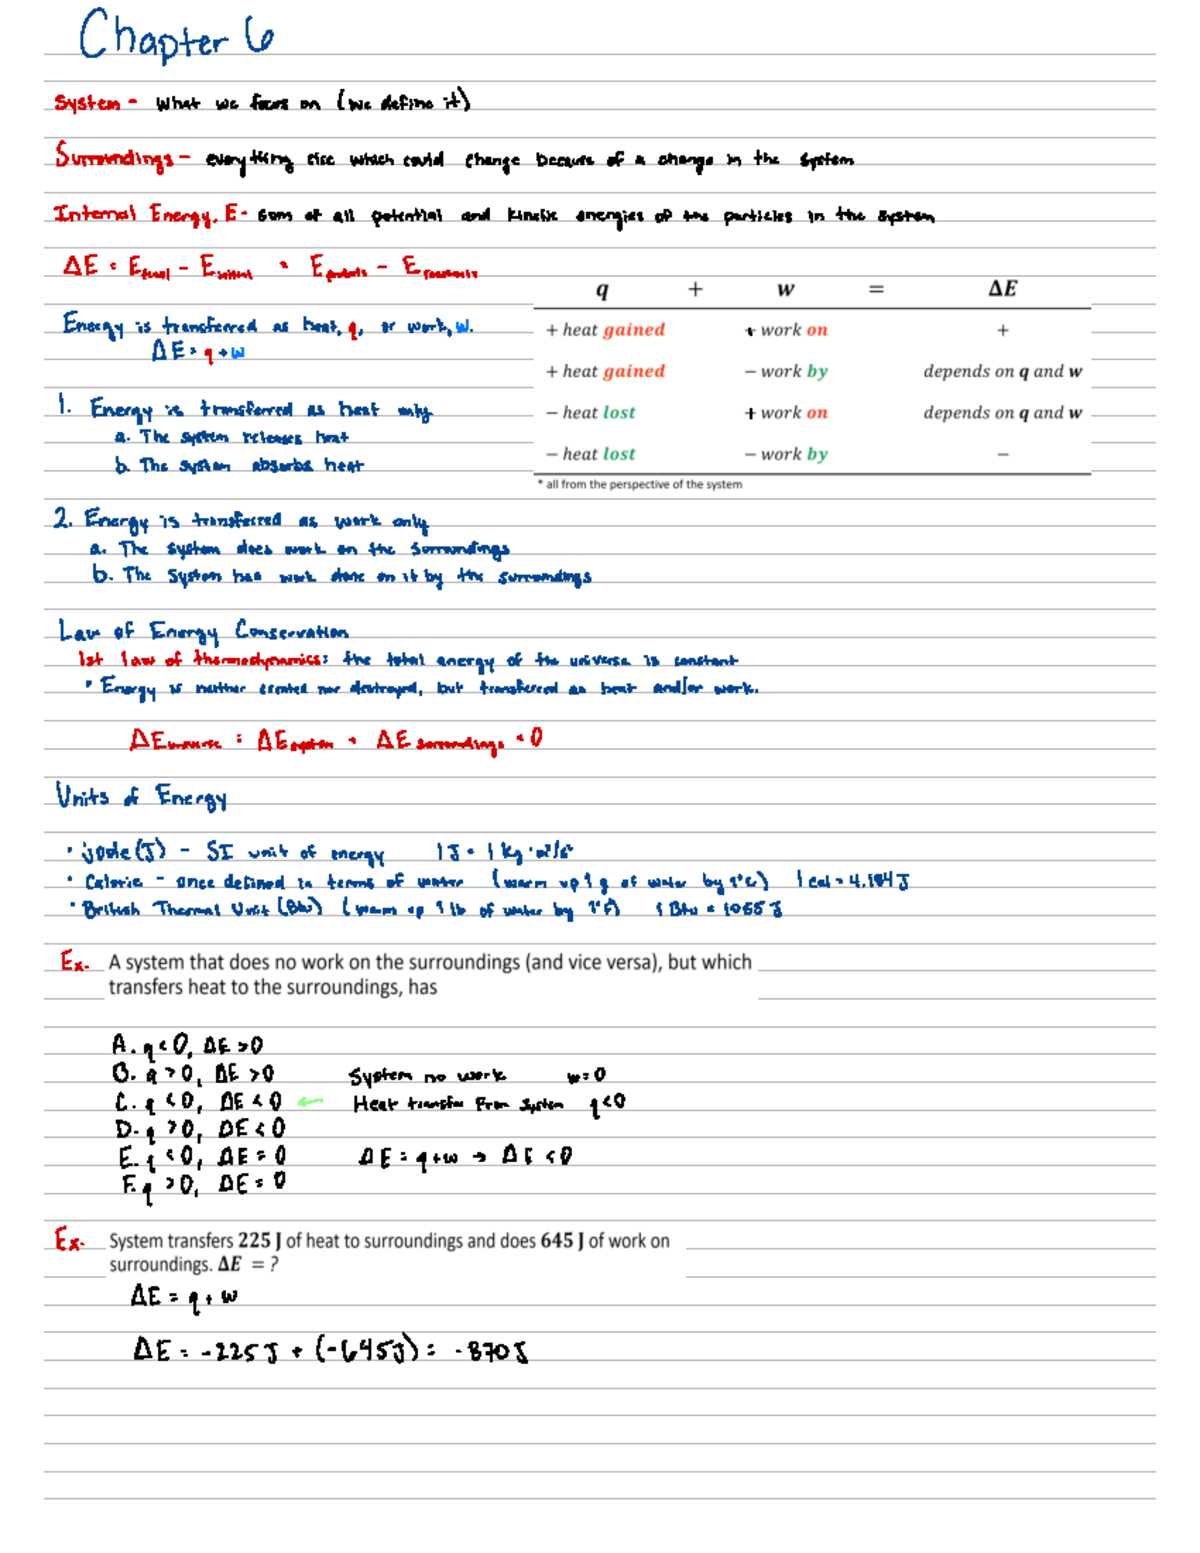 Chapter 6
System - What we focus on (we define it)
Surroundings - everything else which could change because of a change in the system
Internal Energy, E - sum of all potential and kinetic energies of the particles in the system
ΔE = Efinal - Einitial = Eproducts - Ereactants
q + w = ΔE
+ heat gained + work on +
+ heat gained − work by depends on q and w
− heat lost + work on depends on q and w
− heat lost − work by −
* all from the perspective of the system
Energy is transferred as heat, q, or work, w.
ΔE = q + w
1. Energy is transferred as heat only
a. The system releases heat
b. The system absorbs heat
2. Energy is transferred as work only
a. The system does work on the surroundings
b. The System has work done on it by the surroundings
Law of Energy Conservation
1st law of thermodynamics: the total energy of the universe is constant
• Energy is neither created nor destroyed, but transferred as heat and/or work.
ΔEuniverse = ΔEsystem + ΔEsurroundings = 0
Units of Energy
• joule (J) - SI unit of energy 1 J = 1 kg·m²/s²
• Calorie - once defined in terms of water (warm up 1 g of water by 1°C) 1 cal = 4.184 J
• British Thermal Unit (Btu) (warm up 1 lb of water by 1°F) 1 Btu = 1055 J
Ex. A system that does no work on the surroundings (and vice versa), but which
transfers heat to the surroundings, has
A. q < 0, ΔE > 0
B. q > 0, ΔE > 0 System no work w = 0
C. q < 0, ΔE < 0 ← Heat transfer From System q < 0
D. q > 0, ΔE < 0
E. q < 0, ΔE = 0 ΔE = q + w → ΔE < 0
F. q > 0, ΔE = 0
Ex. System transfers 225 J of heat to surroundings and does 645 J of work on
surroundings. ΔE = ?
ΔE = q + w
ΔE = -225 J + (-645 J) = -870 J